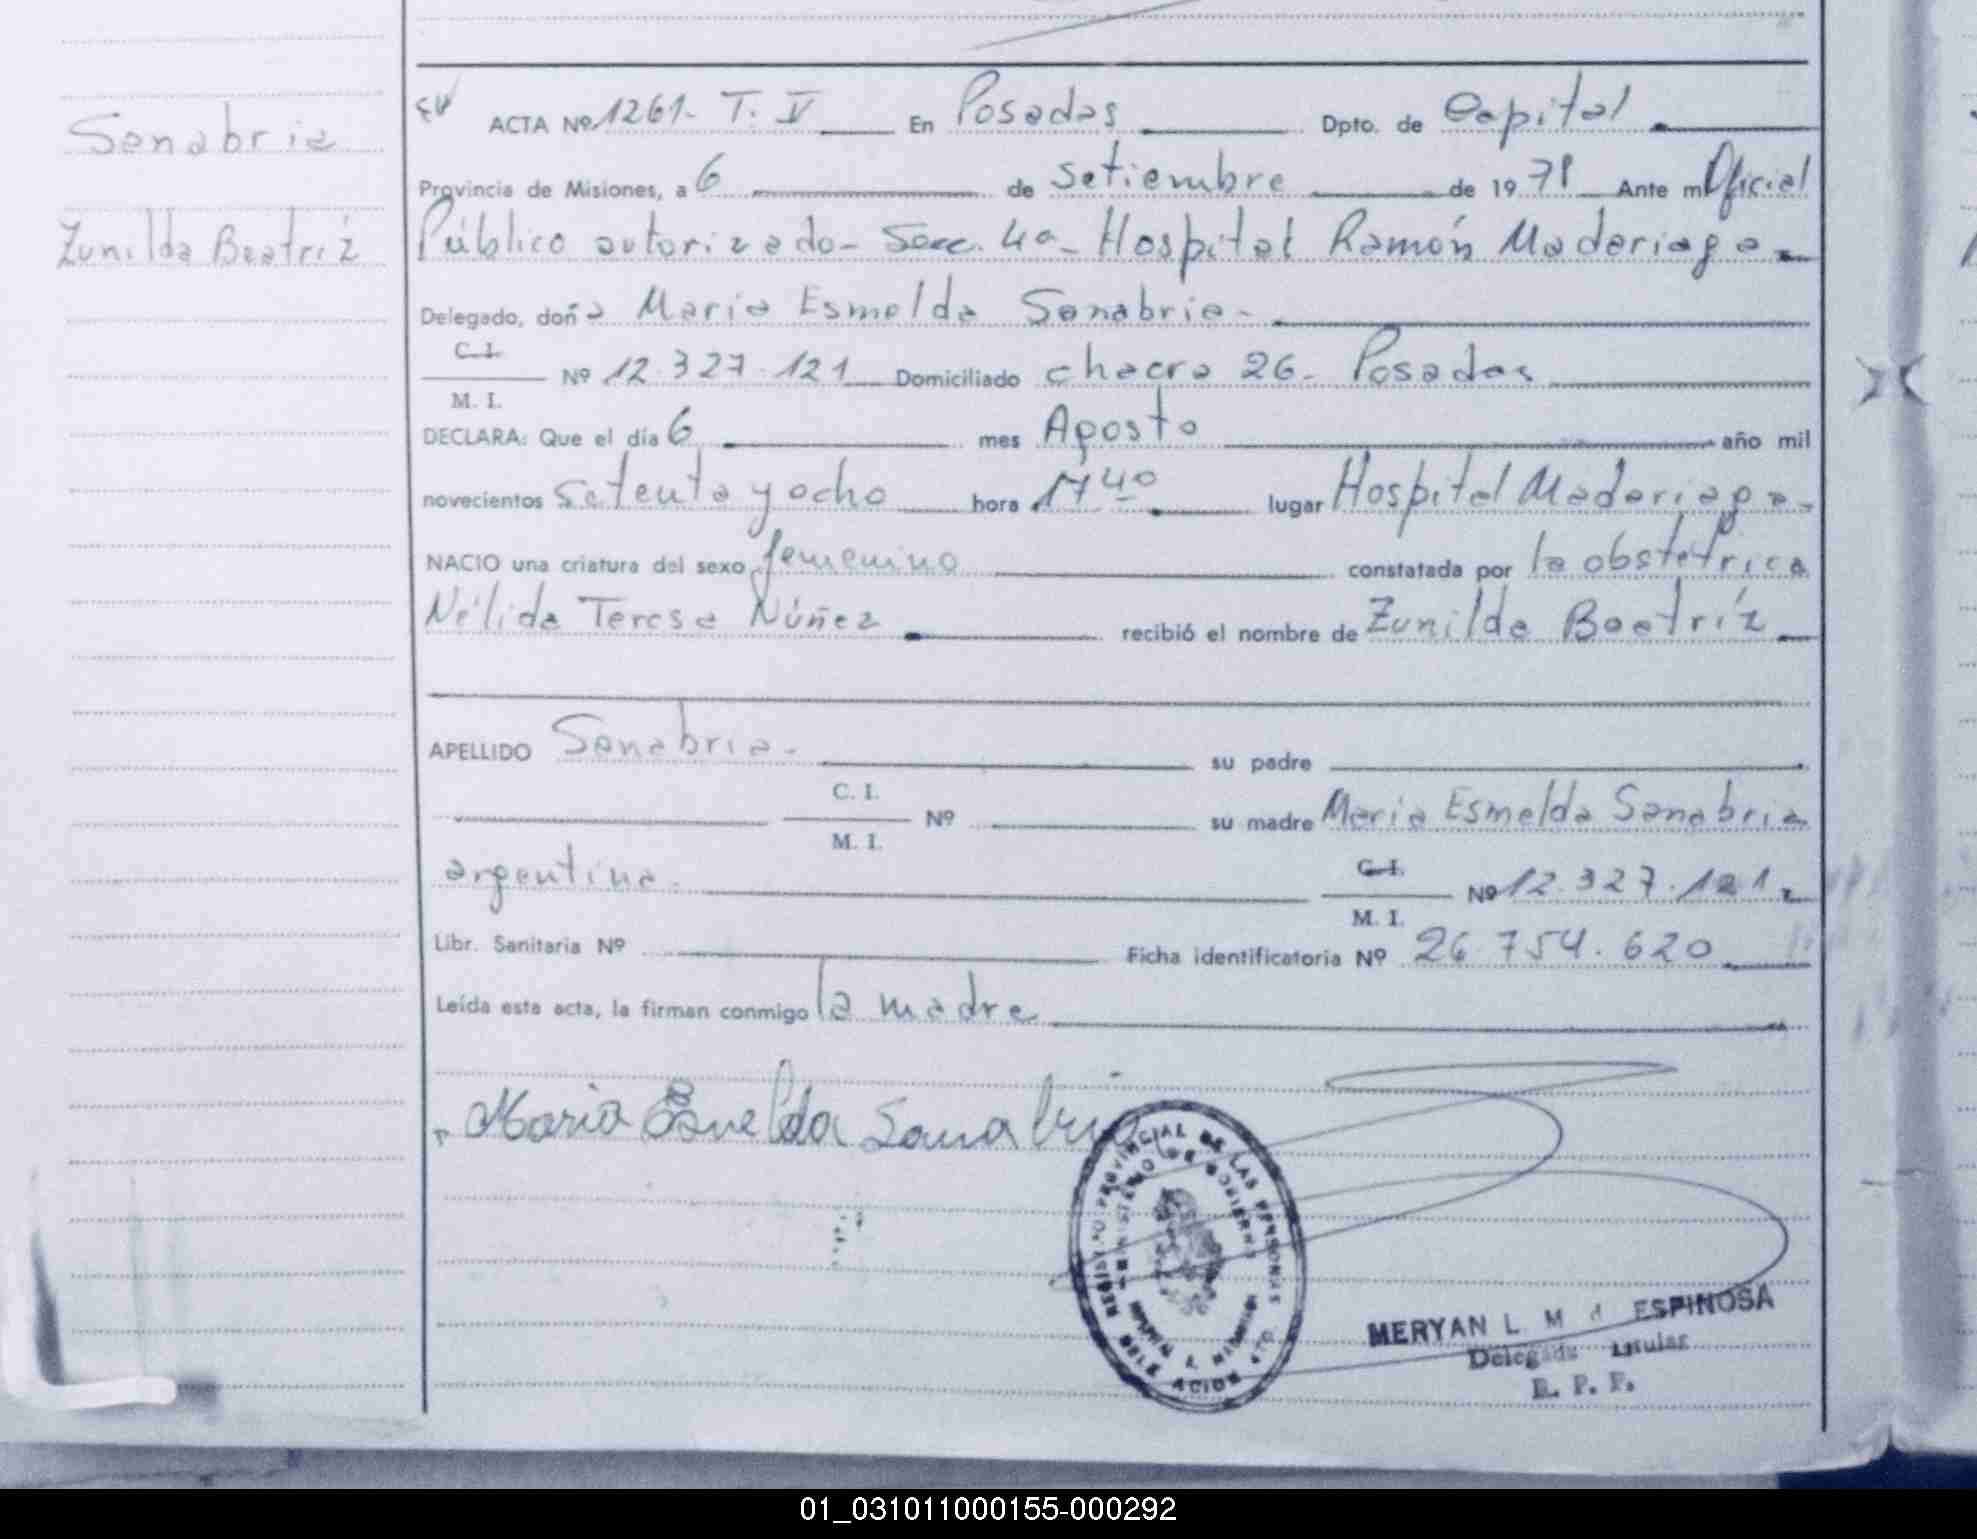 Sanabria
Zunilda Beatríz
ACTA Nº 1261- T. V En Posadas Dpto. de Capital
Provincia de Misiones, a 6 de setiembre de 1978 Ante mí Oficial
Público autorizado- Secc. 4a- Hospital Ramón Madariaga-
Delegado, doña Maria Esmelda Sanabria-
C. I.
M. I.
Nº 12.327.121 Domiciliado chacra 26- Posadas
DECLARA: Que el día 6 mes Agosto año mil
novecientos setenta y ocho hora 17 40 lugar Hospital Madariaga-
NACIO una criatura del sexo femenino constatada por la obstetrica
Nélida Teresa Núñez recibió el nombre de Zunilda Beatríz
APELLIDO Sanabria- su padre
C. I.
M. I.
Nº su madre Maria Esmelda Sanabria
argentina-
C. I.
M. I.
Nº 12.327.121-
Libr. Sanitaria Nº Ficha identificatoria Nº 26.754.620
Leída esta acta, la firman conmigo la madre
Maria Esmelda Sanabria
REGISTRO PROVINCIAL DE LAS PERSONAS
MINISTERIO DE GOBIERNO
MERYAN L. M d ESPINOSA
Delegada Titular
R. P. P.
01_031011000155-000292